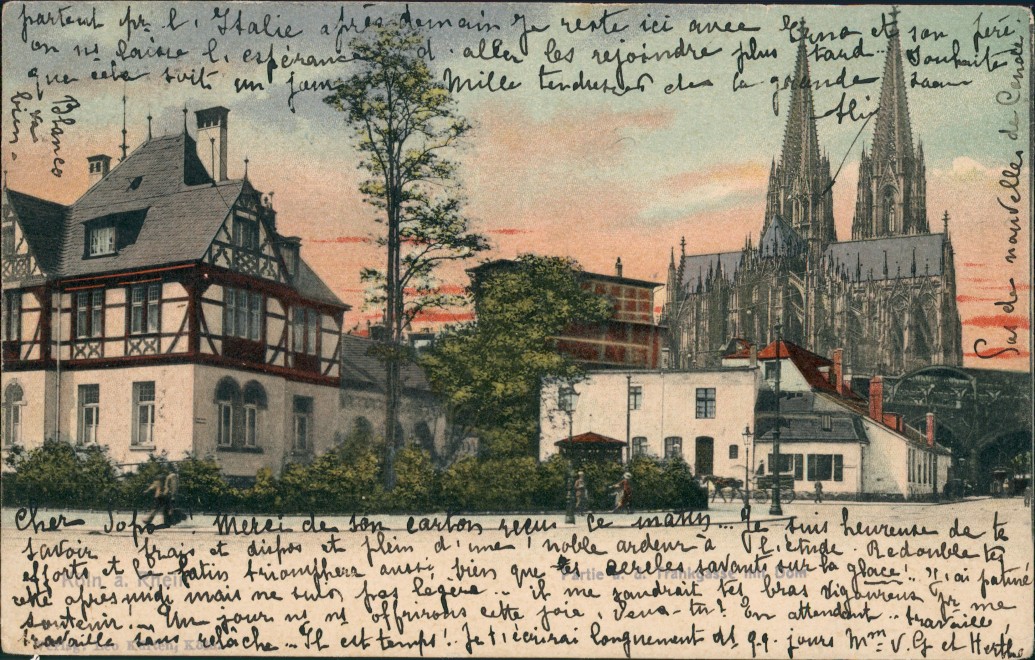 Cher Sopo Merci de ton carton reçu ce matin... Je suis heureuse de te
savoir frais et dispos et plein d'une noble ardeur à l'Etude. Redouble tes
efforts et le latin triomphera aussi bien que tes cercles savants sur la glace!.. J'ai patiné
cette après midi mais ne suis pas légère.. il me faudrait tes bras vigoureux pr me
soutenir.. Un jour ns ns offrirons cette joie, veux-tu? En attendant.. travaille,
travaille sans relâche.. Il est temps!. Je t'écrirai longuement ds qq. jours Mm V.G et Herthe
partent pr l'Italie après-demain Je reste ici avec Erna et son père
on ns laisse l'espérance d'aller les rejoindre plus tard.. Souhaite
que cela soit un jour Mille tendresses de la grande sœur
Blanco
va
bien.
Pas de nouvelles de Candé
Köln a. Rhein
Partie a. d. Trankgasse mit Dom
Verlag: Leo Köln